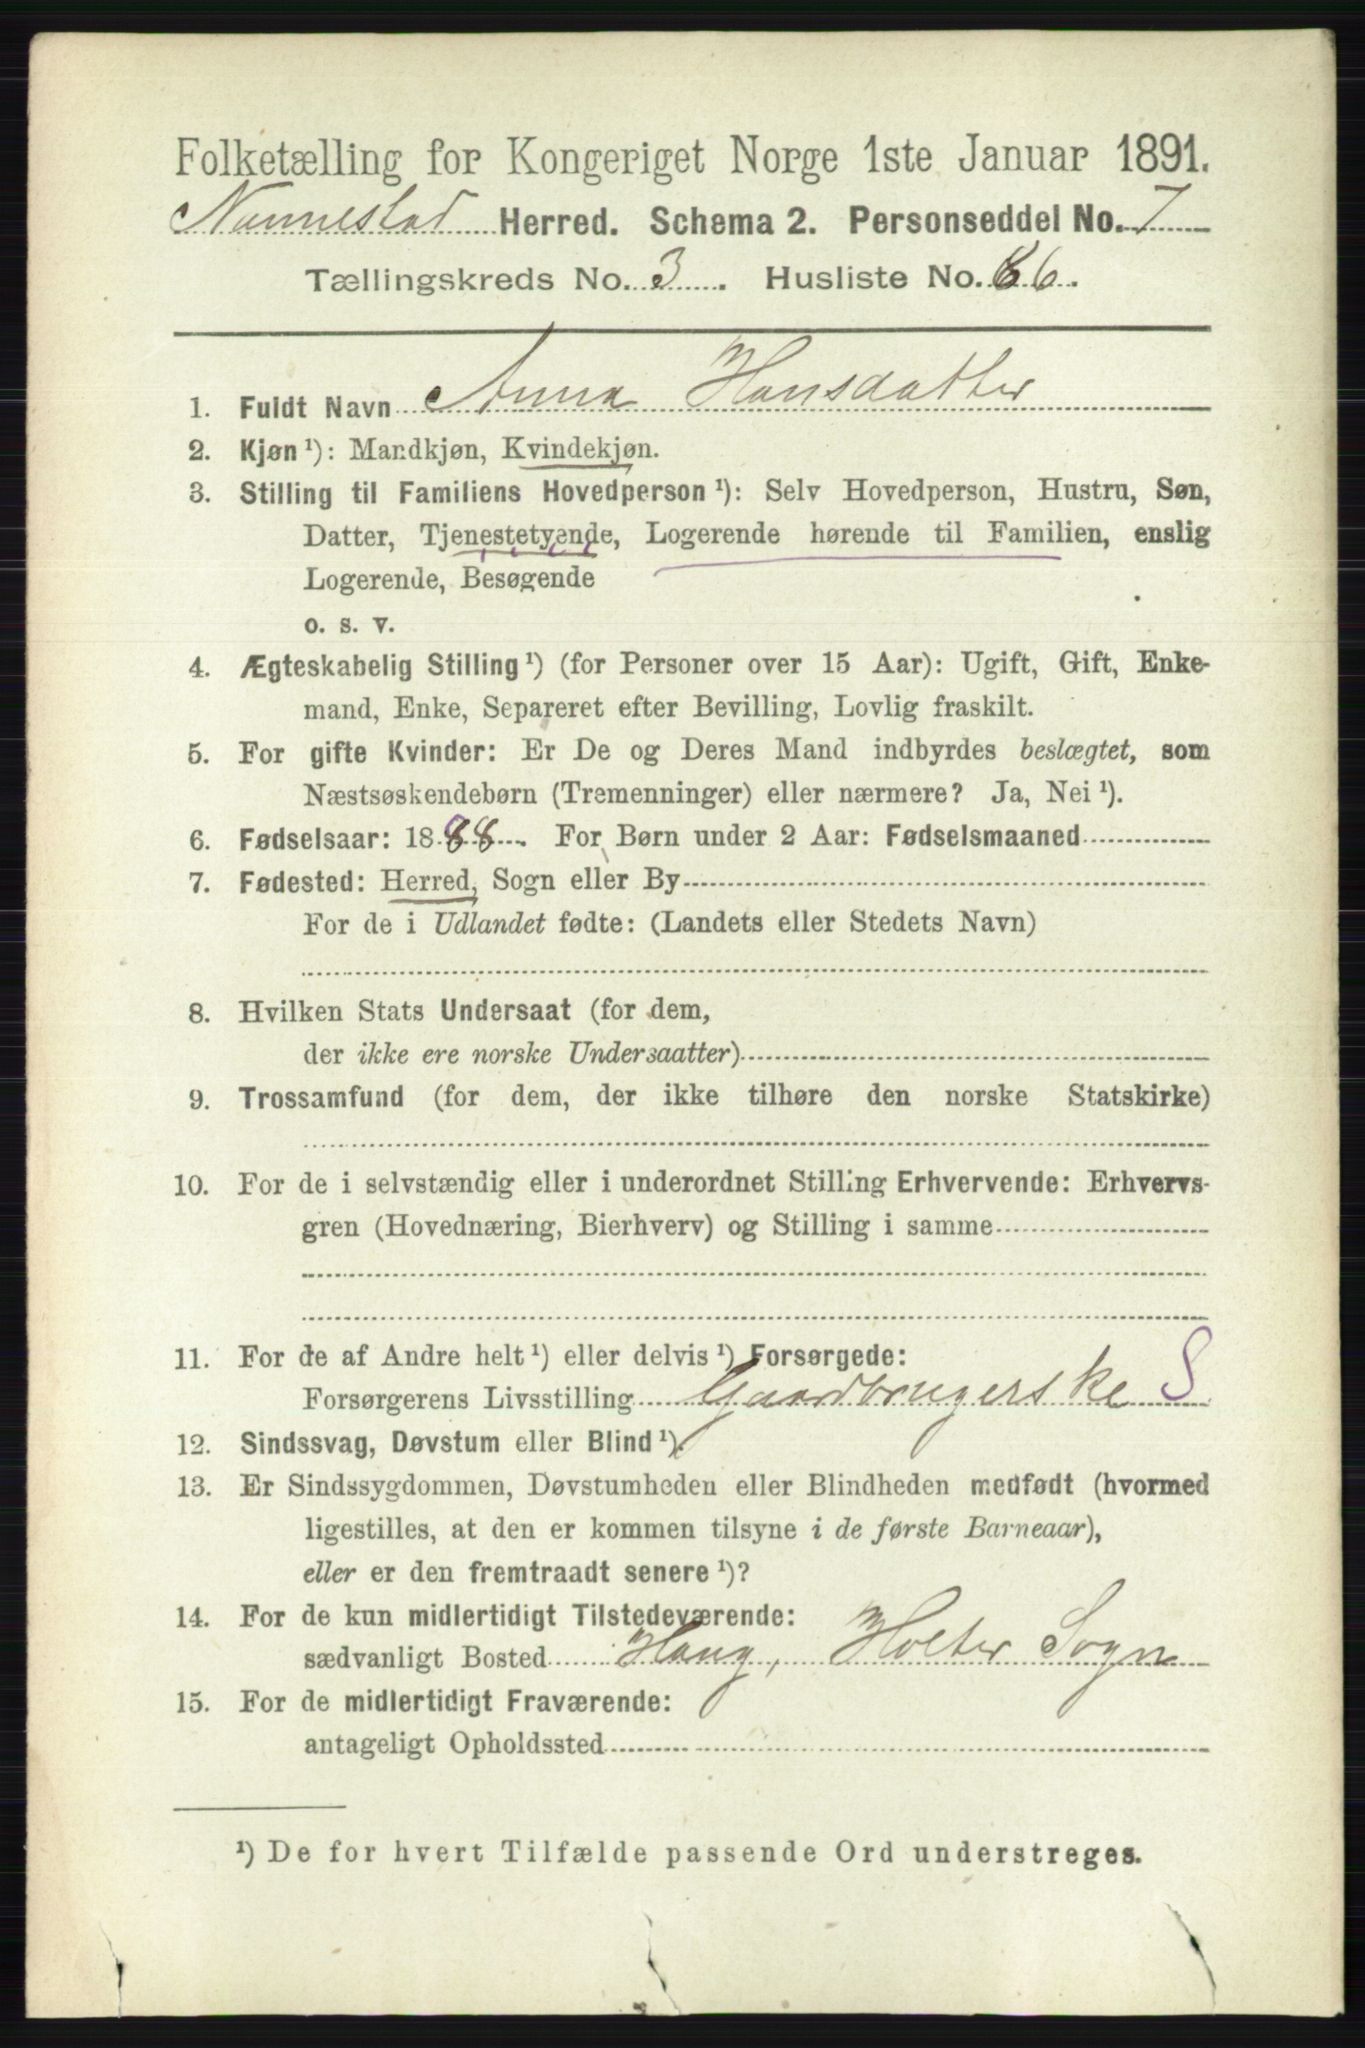 Folketælling for Kongeriget Norge 1ste Januar 1891.
Nannestad Herred. Schema 2. Personseddel No. 7
Tællingskreds No. 3. Husliste No. 66.
1. Fuldt Navn Anna Hansdatter
2. Kjøn ¹): Mandkjøn, Kvindekjøn.
3. Stilling til Familiens Hovedperson ¹): Selv Hovedperson, Hustru, Søn,
Datter, Tjenestetyende, Logerende hørende til Familien, enslig
Logerende, Besøgende
o. s. v.
4. Ægteskabelig Stilling ¹) (for Personer over 15 Aar): Ugift, Gift, Enke-
mand, Enke, Separeret efter Bevilling, Lovlig fraskilt.
5. For gifte Kvinder: Er De og Deres Mand indbyrdes beslægtet, som
Næstsøskendebørn (Tremenninger) eller nærmere? Ja, Nei ¹).
6. Fødselsaar: 1888. For Børn under 2 Aar: Fødselsmaaned
7. Fødested: Herred, Sogn eller By
For de i Udlandet fødte: (Landets eller Stedets Navn)
8. Hvilken Stats Undersaat (for dem,
der ikke ere norske Undersaatter)
9. Trossamfund (for dem, der ikke tilhøre den norske Statskirke)
10. For de i selvstændig eller i underordnet Stilling Erhvervende: Erhvervs-
gren (Hovednæring, Bierhverv) og Stilling i samme
11. For de af Andre helt ¹) eller delvis ¹) Forsørgede:
Forsørgerens Livsstilling Gaardbrugerske S
12. Sindssvag, Døvstum eller Blind ¹).
13. Er Sindssygdommen, Døvstumheden eller Blindheden medfødt (hvormed
ligestilles, at den er kommen tilsyne i de første Barneaar),
eller er den fremtraadt senere ¹)?
14. For de kun midlertidigt Tilstedeværende:
sædvanligt Bosted Haug, Holter Sogn
15. For de midlertidigt Fraværende:
antageligt Opholdssted
¹) De for hvert Tilfælde passende Ord understreges.